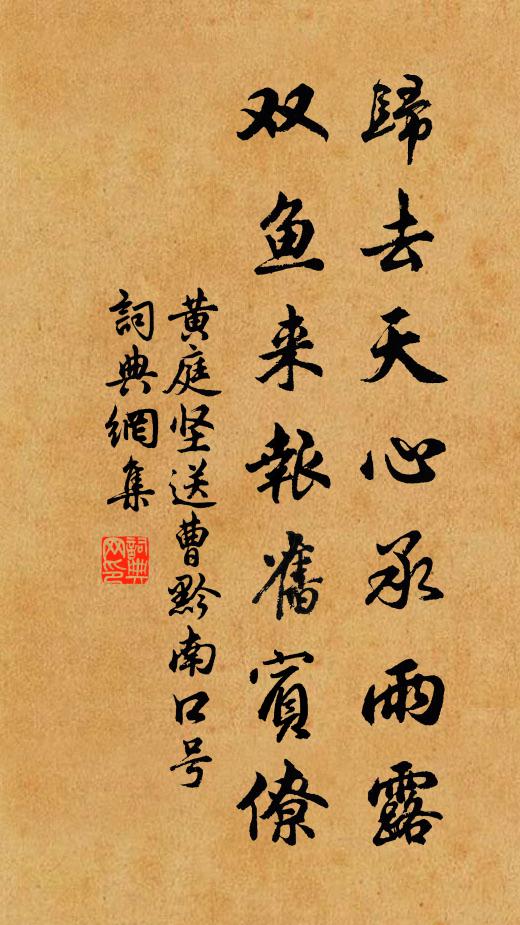 歸去天心承雨露
双鱼来報舊賓僚
黄庭坚送曹黔南口号
詞典網集
詞典网印